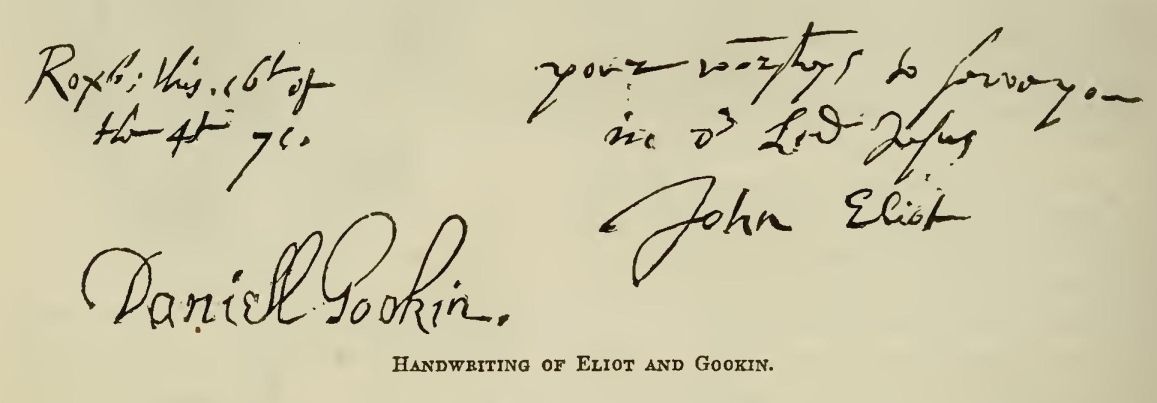 Roxb; this .16th of
the 4t 71.
your worships to serve you
in or Lord Jesus
John Eliot
Daniell Gookin.
HANDWRITING OF ELIOT AND GOOKIN.